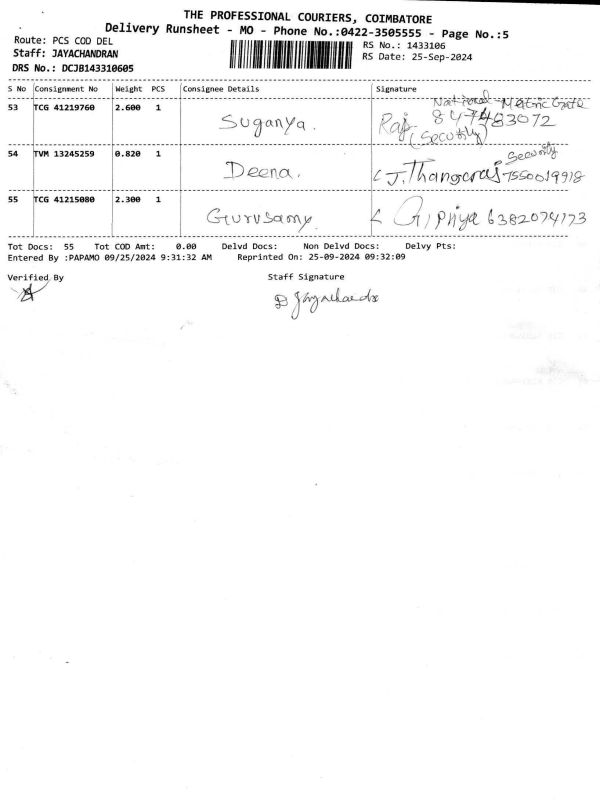 THE PROFESSIONAL COURIERS, COIMBATORE
Delivery Runsheet - MO - Phone No.:0422-3505555 - Page No.:5
Route: PCS COD DEL
RS No.: 1433106
Staff: JAYACHANDRAN
RS Date: 25-Sep-2024
DRS No.: DCJB143310605
S No Consignment No Weight PCS Consignee Details Signature
National Matric Gate
53 TCG 41219760 2.600 1 Suganya. Raj 847483072
(Security)
Security
54 TVM 13245259 0.820 1 Deena. J.Thangaraj 7550019918
55 TCG 41215080 2.300 1 Gurusamy G. Priya 6382074173
Tot Docs: 55 Tot COD Amt: 0.00 Delvd Docs: Non Delvd Docs: Delvy Pts:
Entered By :PAPAMO 09/25/2024 9:31:32 AM Reprinted On: 25-09-2024 09:32:09
Verified By Staff Signature